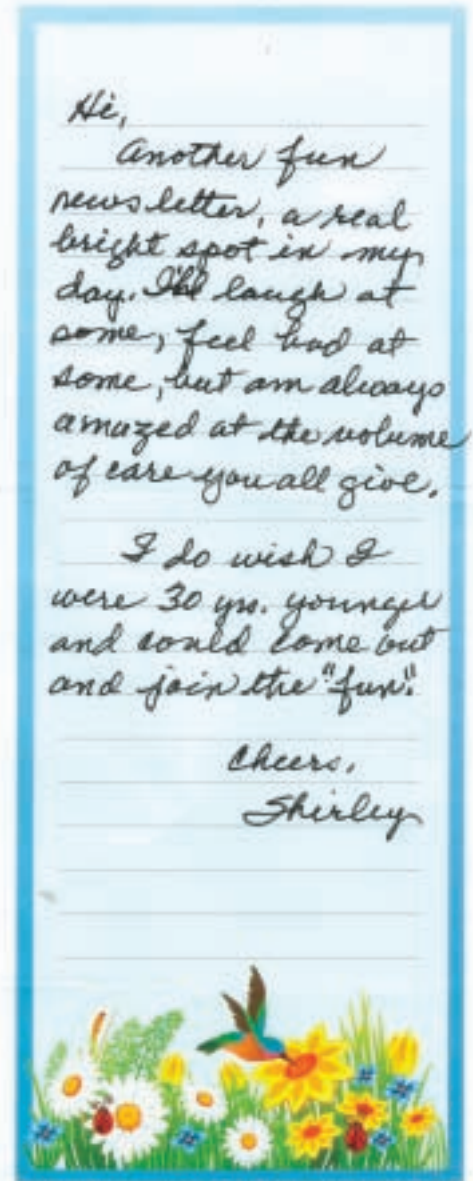 Hi,
Another fun
newsletter, a real
bright spot in my
day. I'll laugh at
some, feel bad at
some, but am always
amazed at the volume
of care you all give.
I do wish I
were 30 yrs. younger
and could come out
and join the "fun".
Cheers,
Shirley